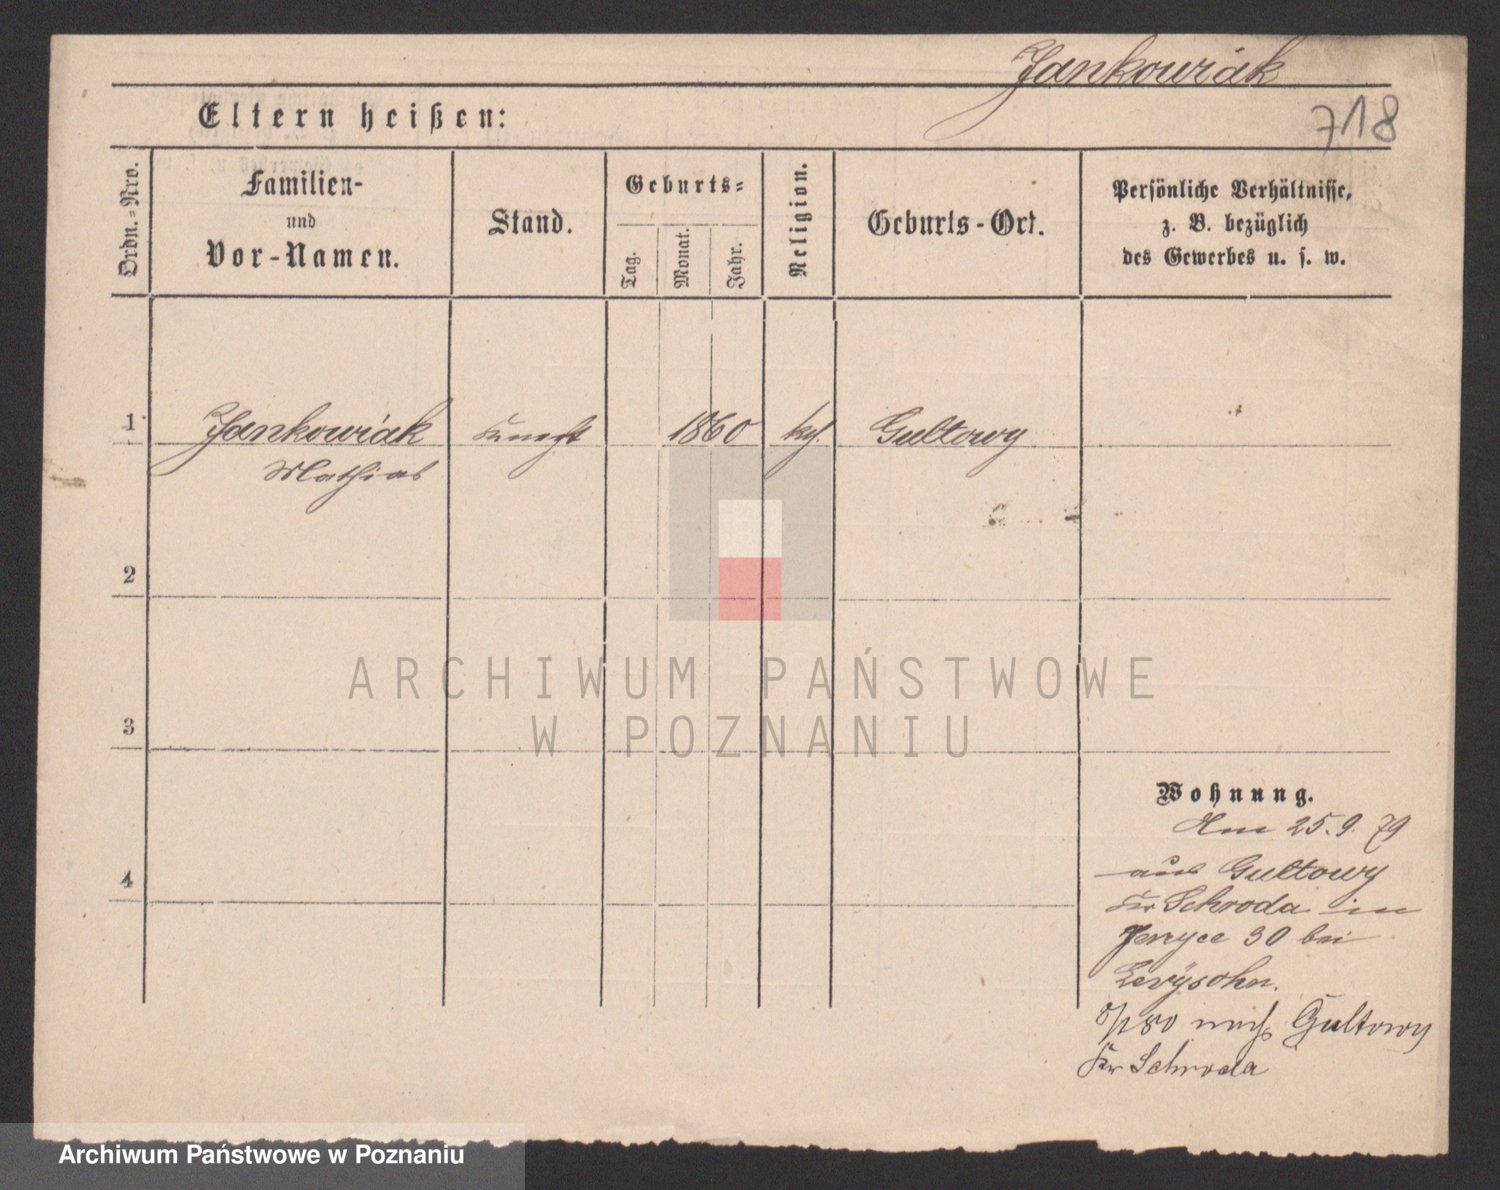 Jankowiak
718
Eltern heißen:
Ordn.-Nro.
Familien-
und
Vor-Namen.
Stand.
Geburts-
Tag.
Monat.
Jahr.
Religion.
Geburts-Ort.
Persönliche Verhältnisse,
z. B. bezüglich
des Gewerbes u. s. w.
1 Jankowiak Knecht 1860 kath. Gultowy
Mathias
2
3
4
Wohnung.
Am 25. 9. 79
aus Gultowy
Kr Schroda in
Jerzyce 30 bei
Levysohn.
8/1 80 nach Gultowy
Kr Schroda
ARCHIWUM PAŃSTWOWE
W POZNANIU
Archiwum Państwowe w Poznaniu